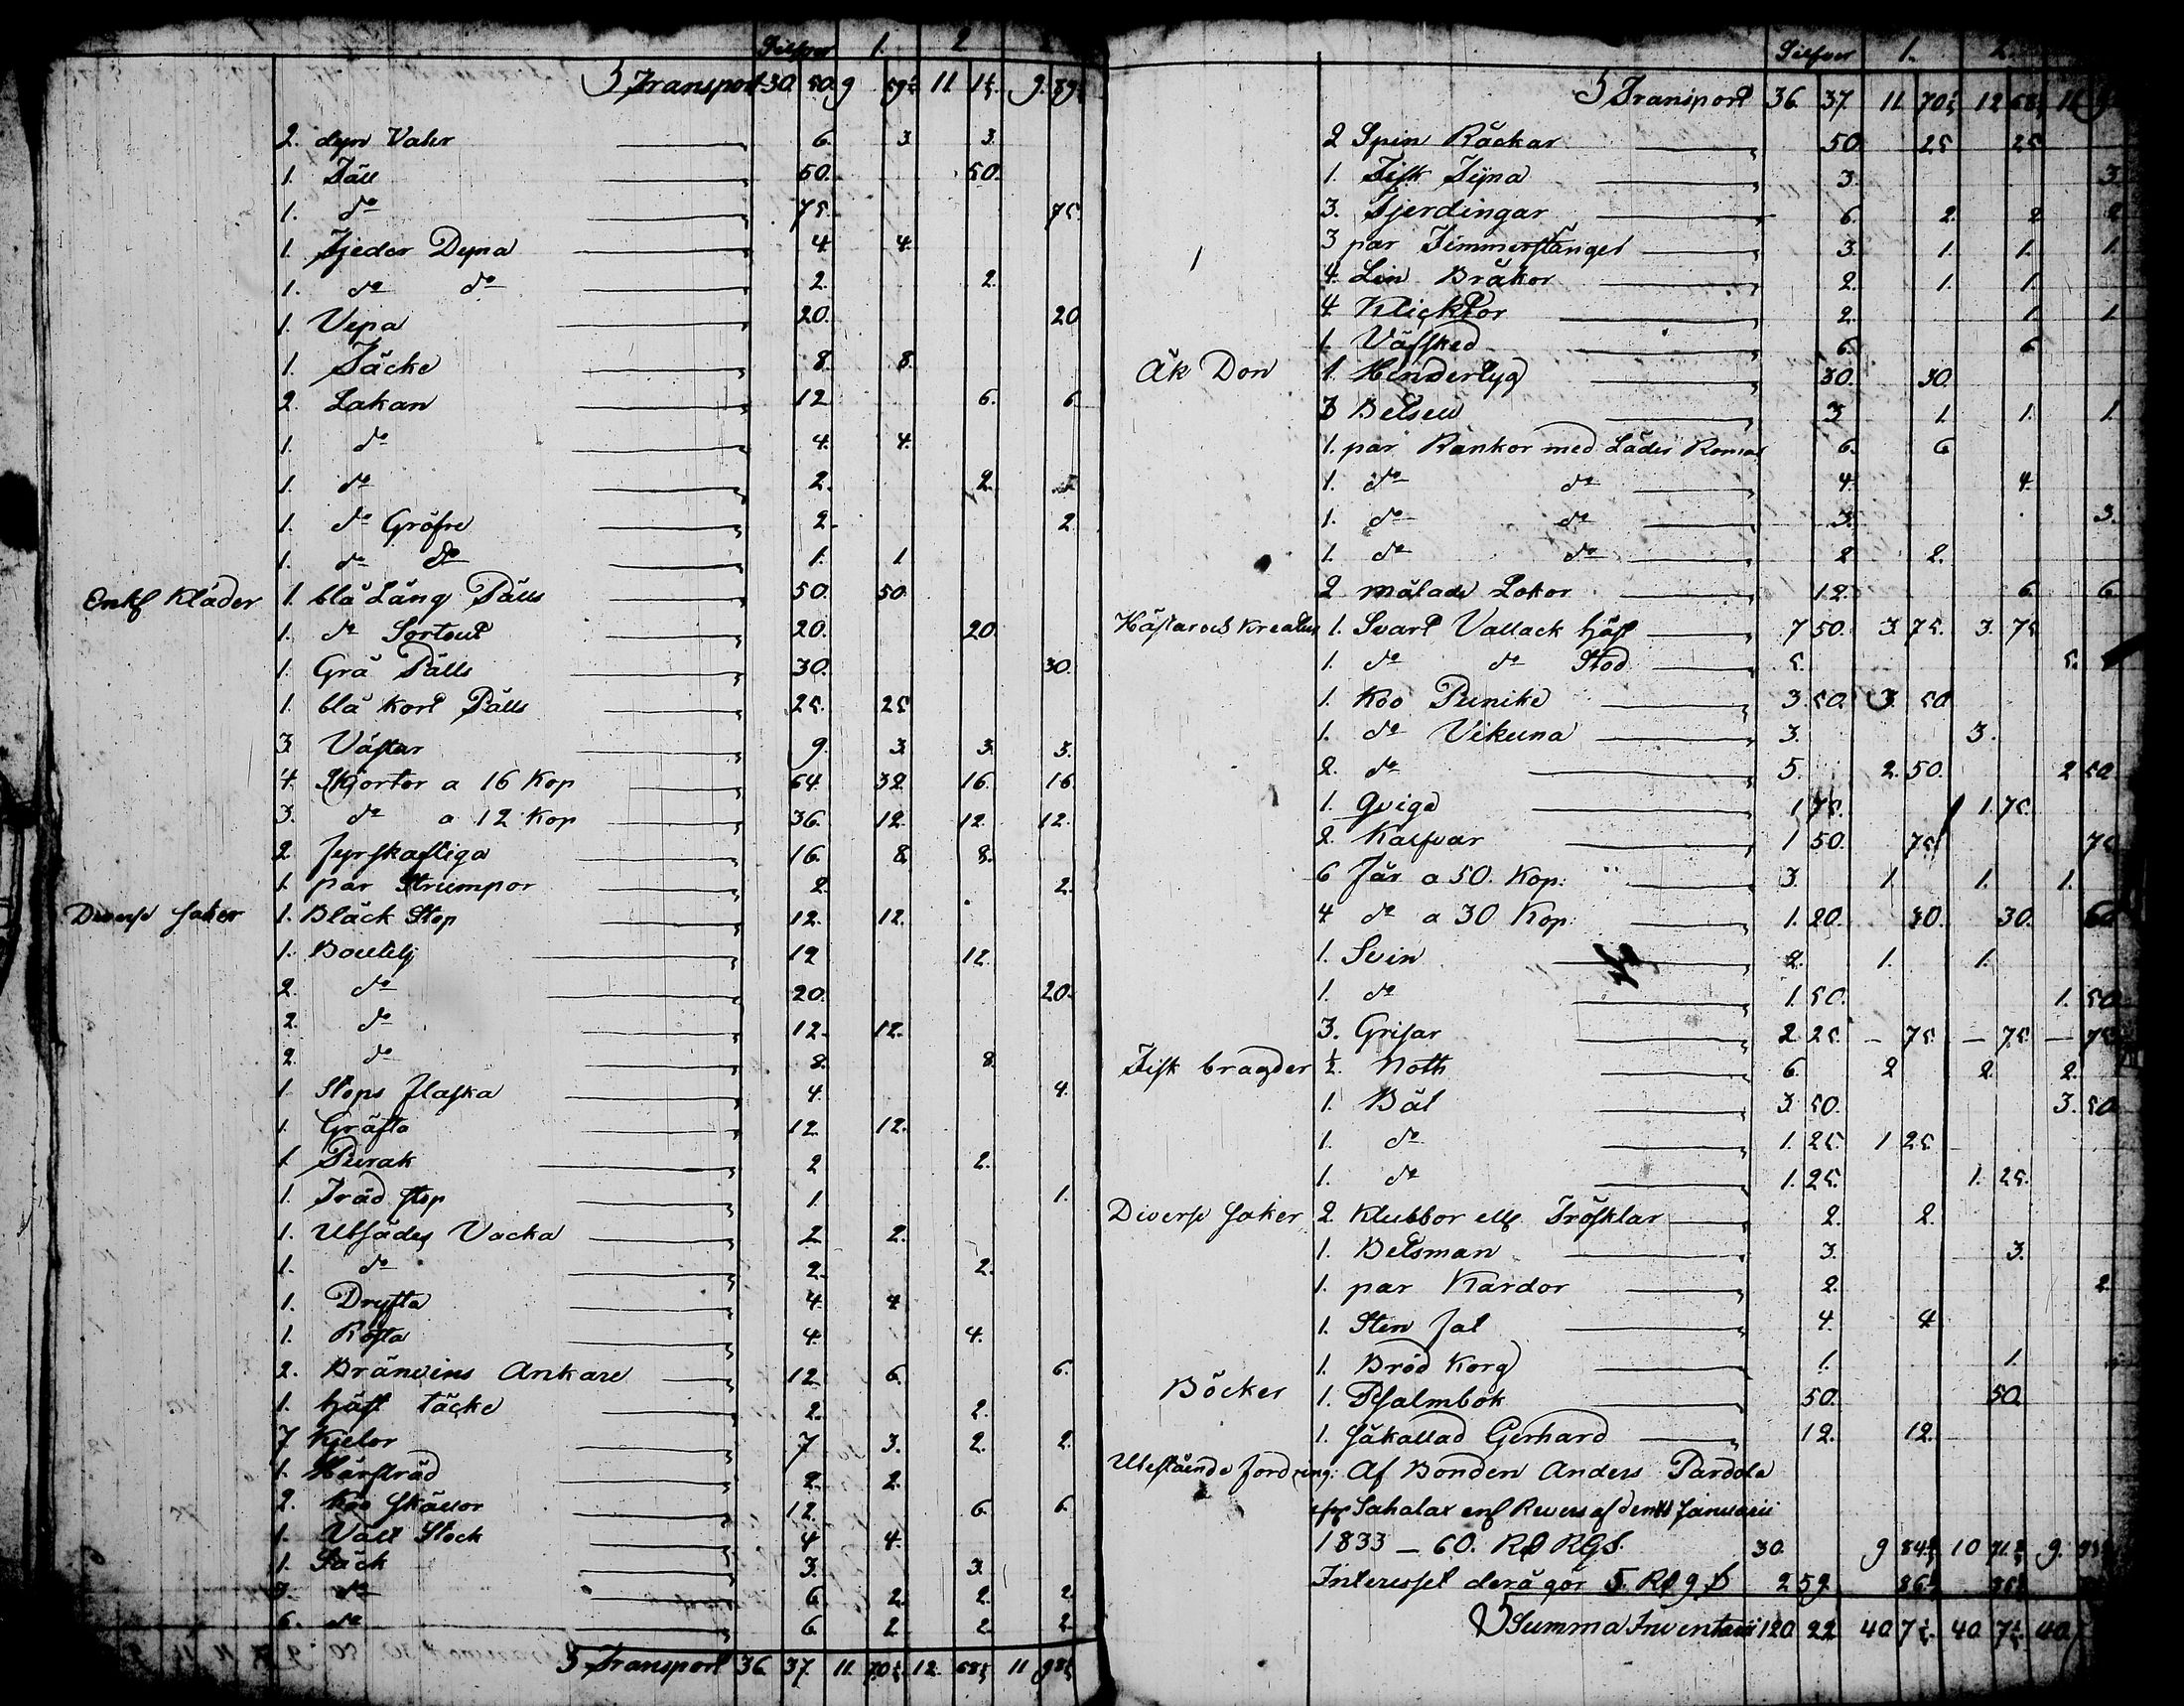 Silfver 1. 2
Transport 30. 50. 9 59½ 11. 1½. 9. 89½
2. dyn Vahr 6. 3 3.
1. Fäll 50. 50.
1. do 75. 75.
1. Fjeder Dyna 4. 4.
1. do do 2. 2.
1. Vepa 20. 20
1. Täcke 8. 8.
2. Lakan 12 6. 6
1. do 4. 4.
1. do 2. 2.
1. do Gröfre 2. 2
1. do do 1. 1
Enkl Kläder 1. blå Lång Pälls 50. 50.
1. do Sortout 20. 20.
1. Grå Pälls 30. 30.
1. blå kort Pälls 25. 25
3 Västar 9. 3. 3. 3.
4. Skjortor a 16 Kop 64. 32 16. 16
3. do a 12 Kop 36. 12. 12. 12.
2 fyrskaftiga 16. 8. 8.
1. par Strumpor 2. 2.
Diverse saker 1. Bläck Stop 12. 12.
1. Boutelj 12 12.
2. do 20. 20.
2. do 12. 12.
2. do 8. 8
1. Stops flaska 4. 4.
1. Gräfta 12. 12.
1. Purak 2 2.
1. Träd stop 1. 1.
1. Utsädes Vacka 2 2.
1. do 2. 2.
1. Dryfta 4. 4
1. Rösta 4. 4.
2. Bränvins Ankare 12 6. 6.
1. häst täcke 2. 2.
7 Kjelor 7 3. 2. 2.
1. Härfträd 2. 2.
2. Koo skällor 12. 6. 6.
1. Valt Stock 4 4.
1. Säck 3. 3.
3. do 6. 2. 2. 2
6. do 6 2 2 2
Transport 36. 37. 11. 70½ 12. 68½ 11 98½
Silfver 1. 2.
Transport 36. 37. 11. 70½ 12 68½ 11
2 Spin Råckar 50. 25 25
1. Fisk Tyna 3. 3.
3. Fjerdingar 6. 2. 2 2
3 par Timmerstänger 3. 1. 1. 1
4. Lin Bråkor 2. 1. 1.
4 Klicktor 2. 1. 1
1. Väfsked 6. 6
Åk Don 1 Hindertyg 30. 30.
3 Betsew 3 1. 1. 1.
1. par Rankor med Läder Remar 6. 6
1. do do 4. 4
1. do do 3. 3.
1. do do 2 2.
2 målade Lokor 12. 6. 6.
Hästar och kreatur 1. Svart Vallack häst 7 50. 3. 75. 3. 75
1. do do Stod 5. 5.
1. Koo Punike 3. 50. 3. 50
1. do Vikuna 3. 3.
2. do 5. 2. 50. 2 50.
1. Qviga 1 75. 1. 75.
2. Kalfvar 1 50. 75 75
6 får a 50. Kop: 3. 1. 1. 1.
4 do a 30 Kop: 1. 20. 30. 30. 60
1. Svin 2. 1. 1.
1. do 1. 50. 1. 50
3. Grisar 2 25. — 75. — 75. — 75
Fisk bragder ½ Noth 6. 2 2. 2.
1. Båt 3. 50. 3. 50
1. do 1. 25. 1 25
1. do 1. 25. 1. 25.
Diverse saker 2 Klubbor elle Tröfklar 2. 2.
1. Betsman 3. 3.
1. par Kardor 2. 2.
1. Sten fat 4. 4
1. Bröd Korg 1. 1.
Böcker 1. Psalmbok 50. 50.
1. såkallad Gerhard 12. 12.
Utestående fordring: Af Bonden Anders Pardola
Sahalax enl Revers af den Januarii
1833 — 60. Rd RGS. 30. 9 84 10 71. 9.
Interesset derå gör 5. Rd 9 2 59 86
Summa Inventarii 120 22 40 7½ 40 7½ 40